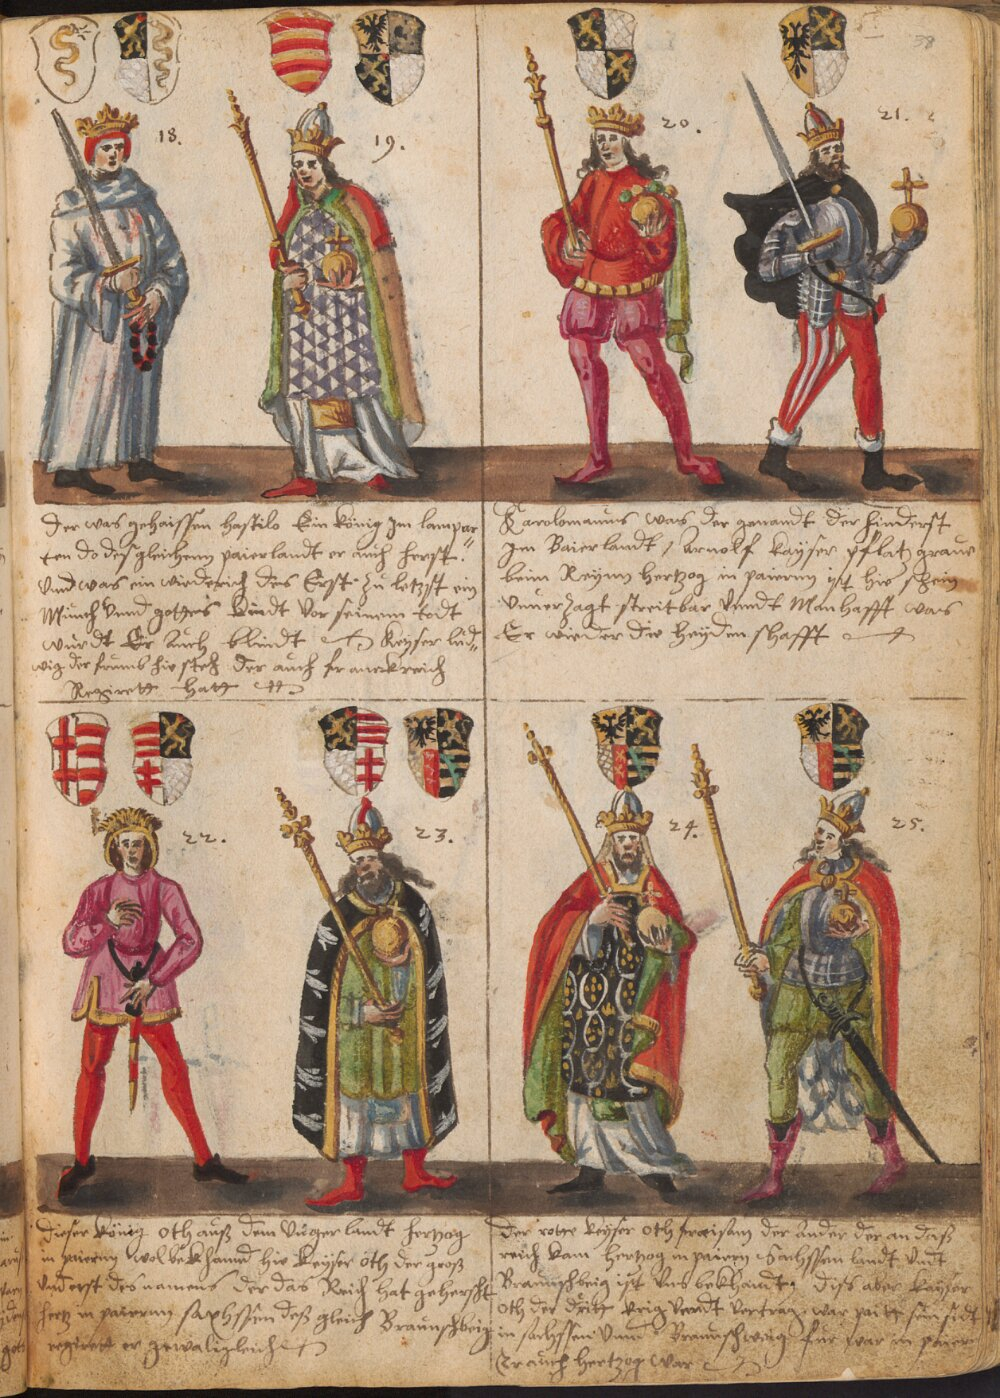 38
18.
19.
20.
21.
Der was gehaissen hastilo Ein König Jm lampar
ten do desgleichenn paierlandt er auch herst
Vnd was ein wiederich des Erst zu letzst ein
Münch Vnnd gottes kindt Vor seinem todt
wurdt Er Auch blindt Keyser lud
wig der frumb hie steh der auch franckreich
Regirett hatt
Karolomannus was der genandt der hinderst
Jm Baierlandt / Arnolf Kayser pflatzgraue
beim Reynn hertzog in paiernn ist hie schein
Vnuerzagt streitbar Vnndt Manhafft was
Er wieder die heyden schafft
22.
23.
24.
25.
Dieser König Oth auß dem Vngerlandt hertzog
in paiernn wol bekhannd hie Keyser oth der groß
Vnd erst des namens der das Reich hat geherscht
hertz in paiernn saxhssen deß gleich Braunschbeig
regirett er gewaligleich
Der rotte Keyser Oth der ander der an daß
reich kam hertzog in paiern Sachssen landt Vnd
Braunschbeig ist Vns bekhandt diß aber Kayser
Oth der dritt
in sachssen Vnnd Braunschweig für war in paier
Er auch hertzog war